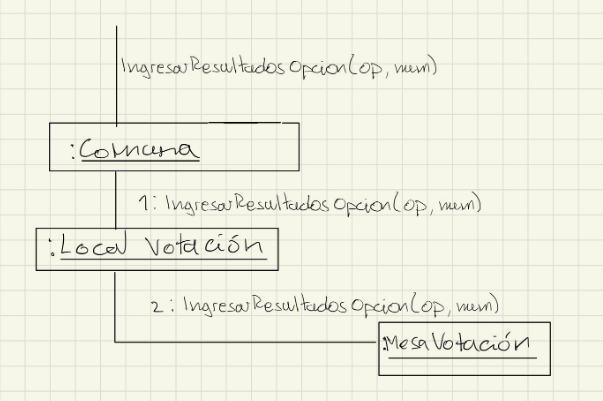 IngresarResultadosOpcion(op, num)
:Comuna
1: IngresarResultadosOpcion(op, num)
:Local Votación
2: IngresarResultadosOpcion(op, num)
:MesaVotación